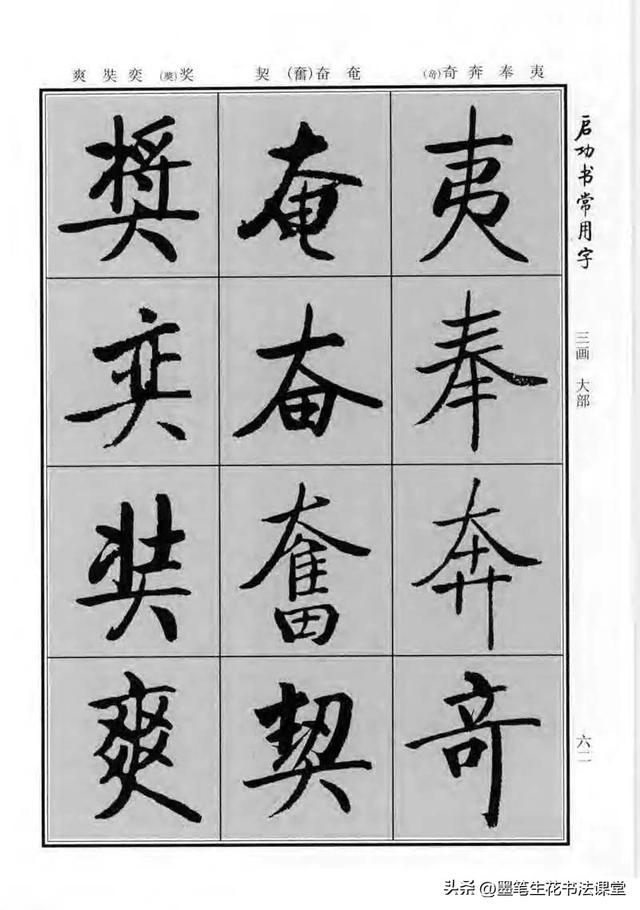 夷奉奔奇(竒) 奄奋(奮)契 奖(奬)奕奘爽
启功书常用字
三画 大部
六二
夷
奉
奔
竒
奄
奋
奮
契
奬
奕
奘
爽
头条@墨笔生花书法课堂